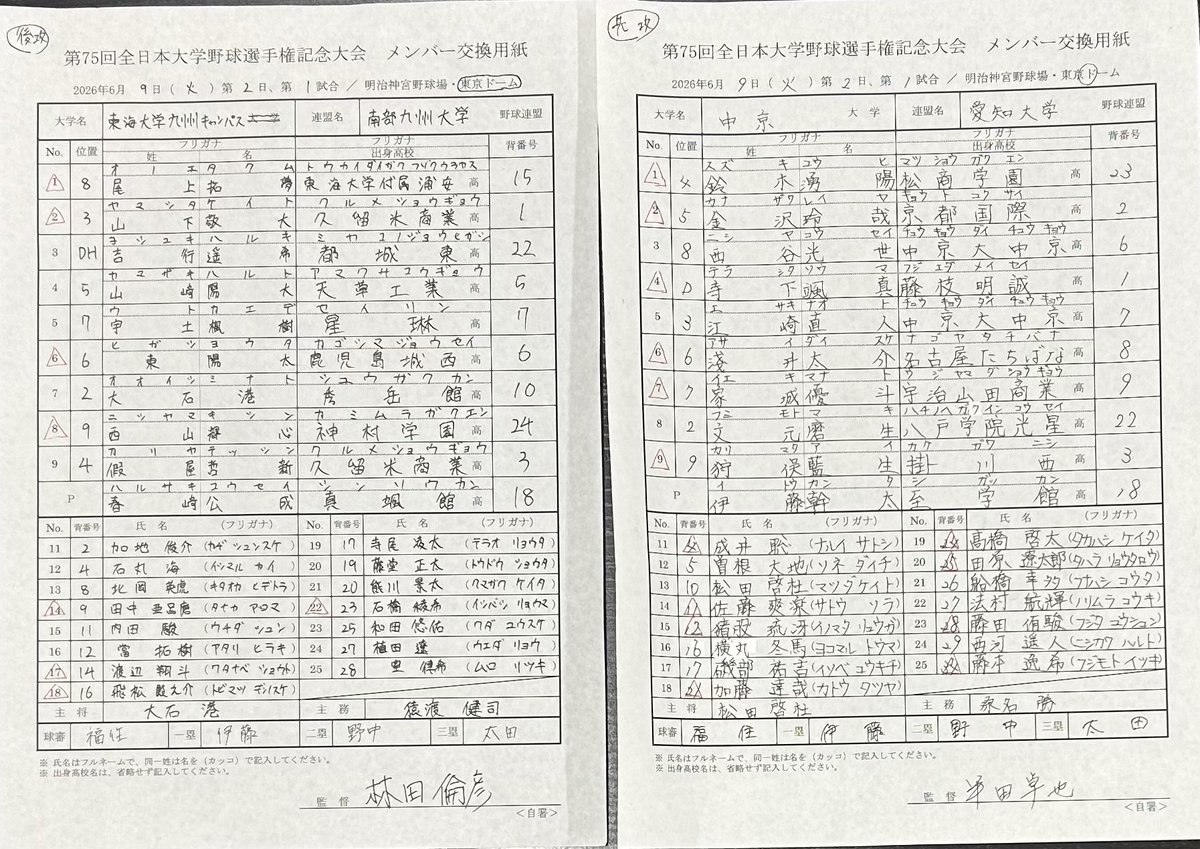 後攻
第75回全日本大学野球選手権記念大会 メンバー交換用紙
2026年6月 9日(火)第2日、第1試合 / 明治神宮野球場・東京ドーム
大学名 東海大学九州キャンパス 連盟名 南部九州大学 野球連盟
No. 位置 フリガナ 姓 名 フリガナ 出身高校 背番号
オノエ タクム トウカイダイガクフゾクウラヤス
1 8 尾上 拓夢 東海大学付属浦安 高 15
ヤマシタ ケイト クルメショウギョウ
2 3 山下 敬大 久留米商業 高 1
ヨシユキ ハルキ ミヤコノジョウヒガシ
3 DH 吉行 遥希 都城東 高 22
ヤマザキ ハルト アマクサコウギョウ
4 5 山崎 陽大 天草工業 高 5
ウト カエデ セイリン
5 7 宇土 楓樹 星琳 高 7
ヒガシ ヨウタ カゴシマジョウセイ
6 6 東 陽太 鹿児島城西 高 6
オオイシ ミナト シュウガクカン
7 2 大石 港 秀岳館 高 10
ニシヤマ キッシン カミムラガクエン
8 9 西山 心 神村学園 高 24
カリヤ テッシン クルメショウギョウ
9 4 假屋 哲新 久留米商業 高 3
ハルサキ コウセイ シンソウカン
P 春崎 公成 真颯館 高 18
No. 背番号 氏名 (フリガナ) No. 背番号 氏名 (フリガナ)
11 2 加地 俊介 (カヂ シュンスケ) 19 17 寺尾 凌太 (テラオ リョウタ)
12 4 石丸 海 (イシマル カイ) 20 19 藤堂 正太 (トウドウ ショウタ)
13 8 北岡 英虎 (キタオカ ヒデトラ) 21 20 熊川 景太 (クマガワ ケイタ)
14 9 田中 亜呂麿 (タナカ アロマ) 22 23 石橋 綾希 (イシバシ リョウマ)
15 11 内田 駿 (ウチダ シュン) 23 25 和田 悠佑 (ワダ ユウスケ)
16 12 當 拓樹 (アタリ ヒラキ) 24 27 植田 遼 (ウエダ リョウ)
17 14 渡辺 翔斗 (ワタナベ ショウト) 25 28 室 倶希 (ムロ リツキ)
18 16 飛松 殿之介 (トビマツ デンノスケ)
主将 大石 港 主務 猿渡 健司
球審 福住 一塁 伊藤 二塁 野中 三塁 太田
※ 氏名はフルネームで、同一姓は名を(カッコ)で記入してください。
※ 出身高校名は、省略せず記入してください。
監督 林田 倫彦
<自署>
先攻
第75回全日本大学野球選手権記念大会 メンバー交換用紙
2026年6月 9日(火)第2日、第1試合 / 明治神宮野球場・東京ドーム
大学名 中京 大学 連盟名 愛知大学 野球連盟
No. 位置 フリガナ 姓 名 フリガナ 出身高校 背番号
スズキ ユウヒ マツショウガクエン
1 4 鈴木 湧陽 松商学園 高 23
カナザワ レイヤ キョウトコクサイ
2 5 金沢 玲哉 京都国際 高 2
ニシヤ コウセイ チュウキョウダイチュウキョウ
3 8 西谷 光世 中京大中京 高 6
テラシタ ソウマ フジエダメイセイ
4 D 寺下 颯真 藤枝明誠 高 1
エサキ ナオト チュウキョウダイチュウキョウ
5 3 江崎 直人 中京大中京 高 7
アサイ ダイスケ ナゴヤタチバナ
6 6 淺井 太介 名古屋たちばな 高 8
イエキ マナト ウジヤマダショウギョウ
7 7 家城 優斗 宇治山田商業 高 9
フミモト マキ ハチノヘガクインコウセイ
8 2 文元 磨生 八戸学院光星 高 22
カリマタ アイ カケガワニシ
9 9 狩俣 藍生 掛川西 高 3
イトウ カンタ シガッカン
P 伊藤 幹太 至学館 高 18
No. 背番号 氏名 (フリガナ) No. 背番号 氏名 (フリガナ)
11 成井 聡 (ナルイ サトシ) 19 高橋 啓太 (タカハシ ケイタ)
12 5 曽根 大地 (ソネ ダイチ) 20 25 田原 遼太郎 (タハラ リョウタロウ)
13 10 松田 啓杜 (マツダ ケイト) 21 26 船橋 幸汰 (フナハシ コウタ)
14 11 佐藤 爽漯 (サトウ ソラ) 22 27 法村 航輝 (ノリムラ コウキ)
15 12 猪股 琉冴 (イノマタ リュウガ) 23 28 藤田 侑駿 (フジタ コウシュン)
16 13 横丸 冬馬 (ヨコマル トウマ) 24 29 西河 遥人 (ニシカワ ハルト)
17 17 磯部 祐吉 (イソベ ユウキチ) 25 藤本 逸希 (フジモト イツキ)
18 21 加藤 達哉 (カトウ タツヤ)
主将 松田 啓杜 主務 桑名 勝
球審 福住 一塁 伊藤 二塁 野中 三塁 太田
※ 氏名はフルネームで、同一姓は名を(カッコ)で記入してください。
※ 出身高校名は、省略せず記入してください。
監督 半田 卓也
<自署>